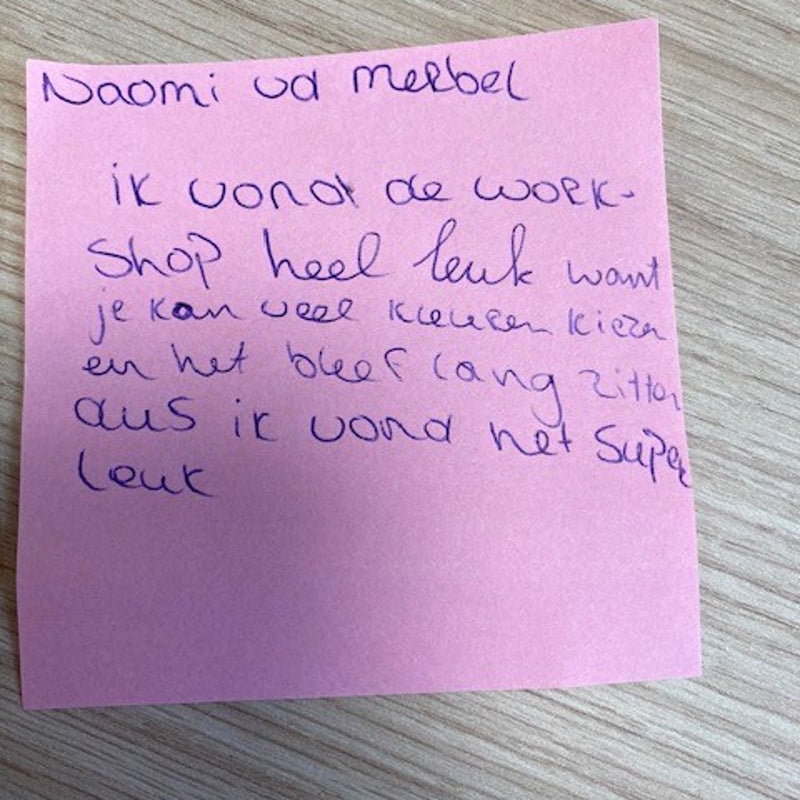 Naomi vd Merbel
ik vond de work-
shop heel leuk want
je kan veel kleuren kiezen
en het bleef lang zitten
dus ik vond het super
leuk